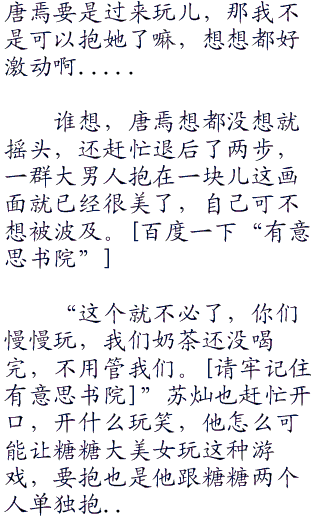 唐焉要是过来玩儿，那我不
是可以抱她了嘛，想想都好
激动啊.....
谁想，唐焉想都没想就
摇头，还赶忙退后了两步，
一群大男人抱在一块儿这画
面就已经很美了，自己可不
想被波及。[百度一下“有意
思书院”]
“这个就不必了，你们
慢慢玩，我们奶茶还没喝
完，不用管我们。[请牢记住
有意思书院]”苏灿也赶忙开
口，开什么玩笑，他怎么可
能让糖糖大美女玩这种游
戏，要抱也是他跟糖糖两个
人单独抱..